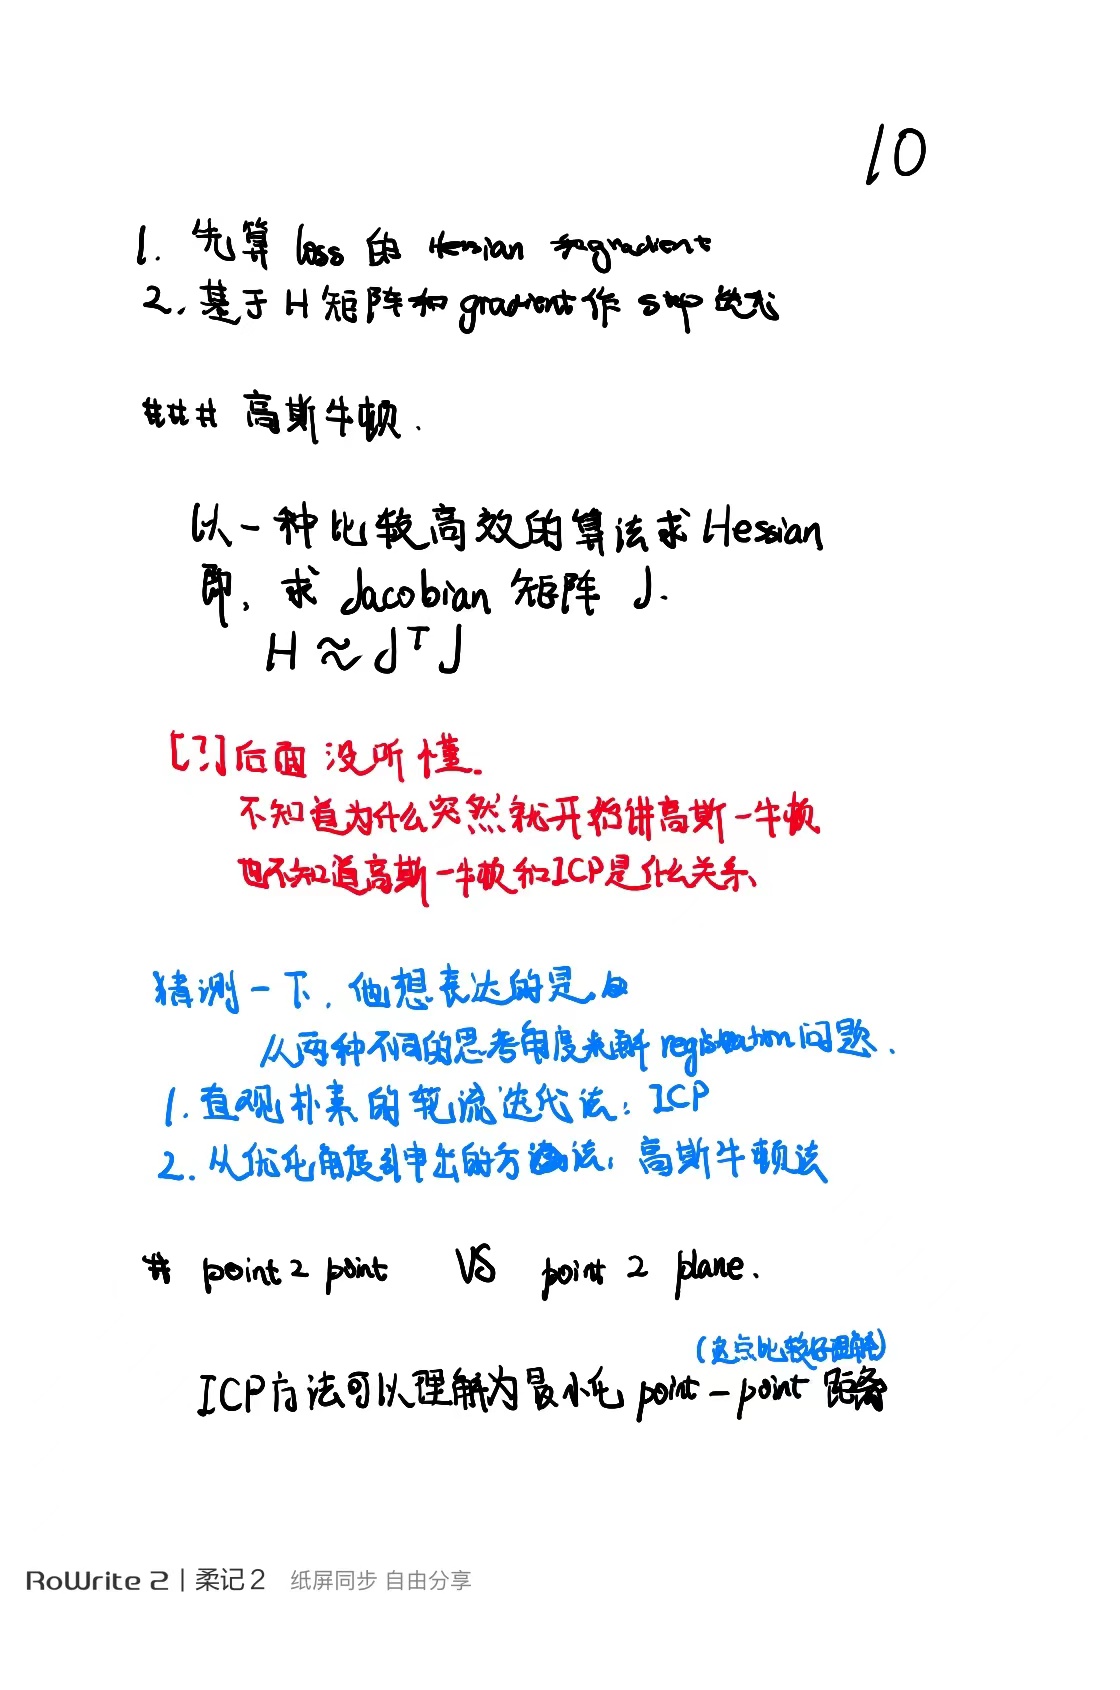 10
1. 先算 loss 的 Hessian 和gradient
2. 基于 H 矩阵和 gradient 作 step 迭代
### 高斯牛顿.
以一种比较高效的算法求 Hessian
即, 求 Jacobian 矩阵 J.
H ≈ JᵀJ
[?]后面没听懂.
不知道为什么突然就开始讲高斯-牛顿
也不知道高斯-牛顿和ICP是什么关系、
猜测一下, 他想表达的是
从两种不同的思考角度来解 registration 问题.
1. 直观朴素的轮流迭代法: ICP
2. 从优化角度引申出的方法: 高斯牛顿法
# point 2 point VS point 2 plane.
(这点比较好理解)
ICP方法可以理解为最小化 point-point 距离
RoWrite 2 | 柔记 2 纸屏同步 自由分享